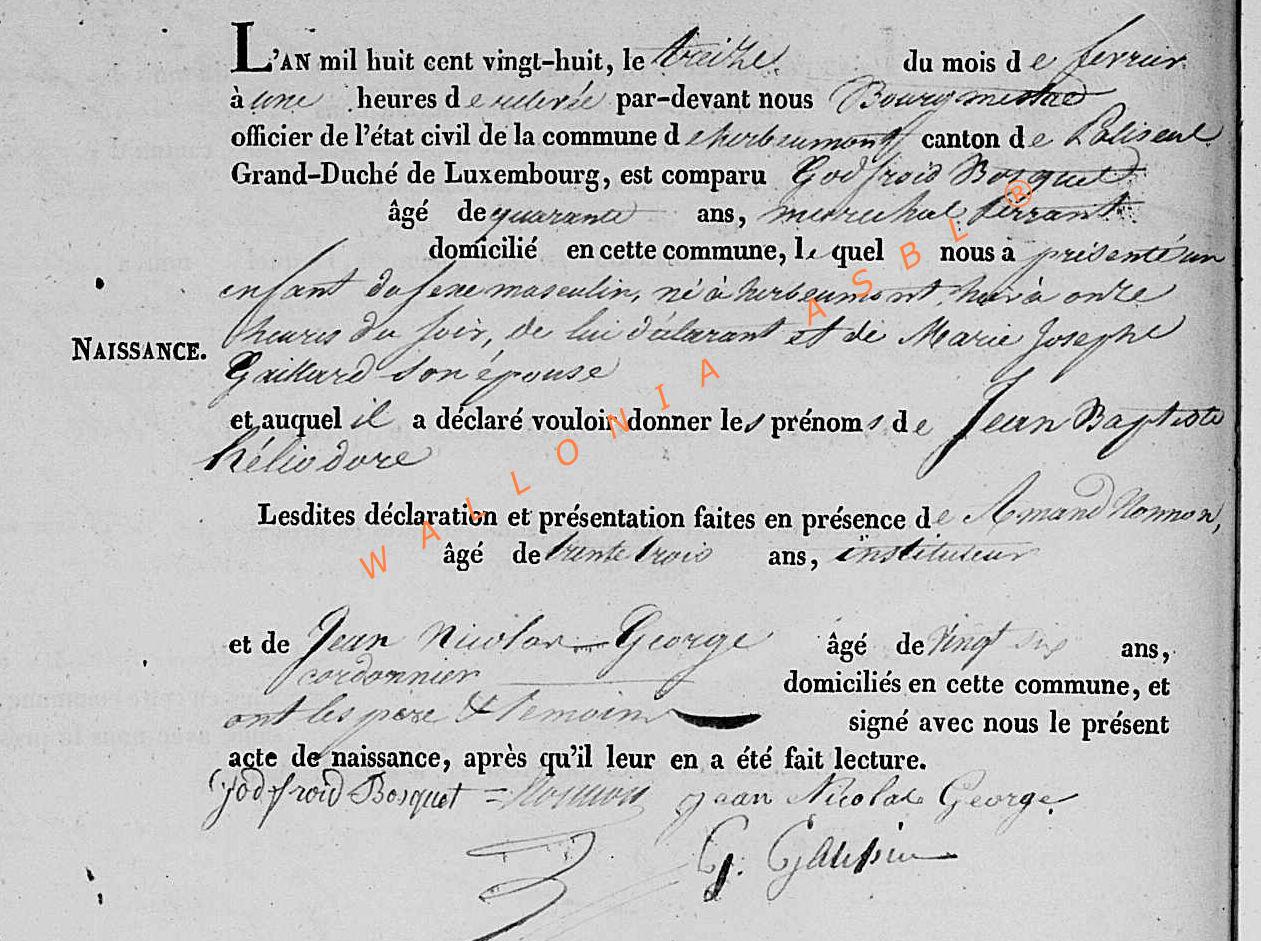 L'AN mil huit cent vingt-huit, le treize du mois de fevrier
à une heures de relevée par-devant nous Bourgmestre
officier de l'état civil de la commune d'herbeumont canton de Paliseul
Grand-Duché de Luxembourg, est comparu Godfroid Bosquet
âgé de quarante ans, marechal ferrant
domicilié en cette commune, le quel nous a présenté un
enfant du sexe masculin, né à herbeumont hier à onze
NAISSANCE.
heures du soir, de lui déclarant et de Marie Josephe
Gaillard son épouse
et auquel il a déclaré vouloir donner les prénoms de Jean Baptiste
héliodore
Lesdites déclaration et présentation faites en présence de Amand Nonnon,
âgé de trente trois ans, instituteur
et de Jean Nicolas George âgé de vingt six ans,
cordonnier domiciliés en cette commune, et
ont les père & temoins signé avec nous le présent
acte de naissance, après qu'il leur en a été fait lecture.
Godfroid Bosquet Nonnon jean Nicolas George
G.
WALLONIA ASBL ®